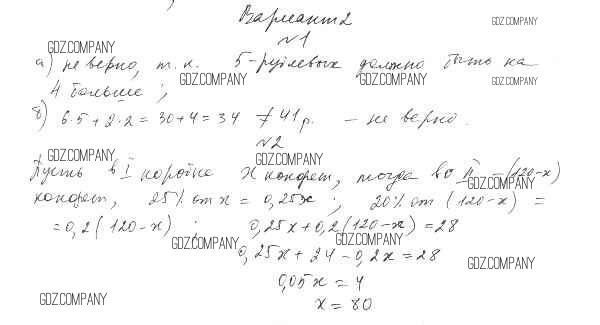 Вариант 2
GDZ.COMPANY
№1
GDZ.COMPANY
а) неверно, т.к. 5-рублевых должно быть на
GDZ.COMPANY GDZ.COMPANY GDZ.COMPANY
4 больше;
б) 6·5 + 2·2 = 30+4 = 34 ≠ 41 р. – не верно.
№2
GDZ.COMPANY GDZ.COMPANY
Пусть в I коробке x конфет, тогда во II – (120-x)
GDZ.COMPANY
конфет, 25% от x = 0,25x ; 20% от (120-x) =
= 0,2(120-x) ; 0,25x+0,2(120-x) = 28
GDZ.COMPANY GDZ.COMPANY
0,25x + 24 - 0,2x = 28
GDZ.COMPANY
0,05x = 4
GDZ.COMPANY
x = 80